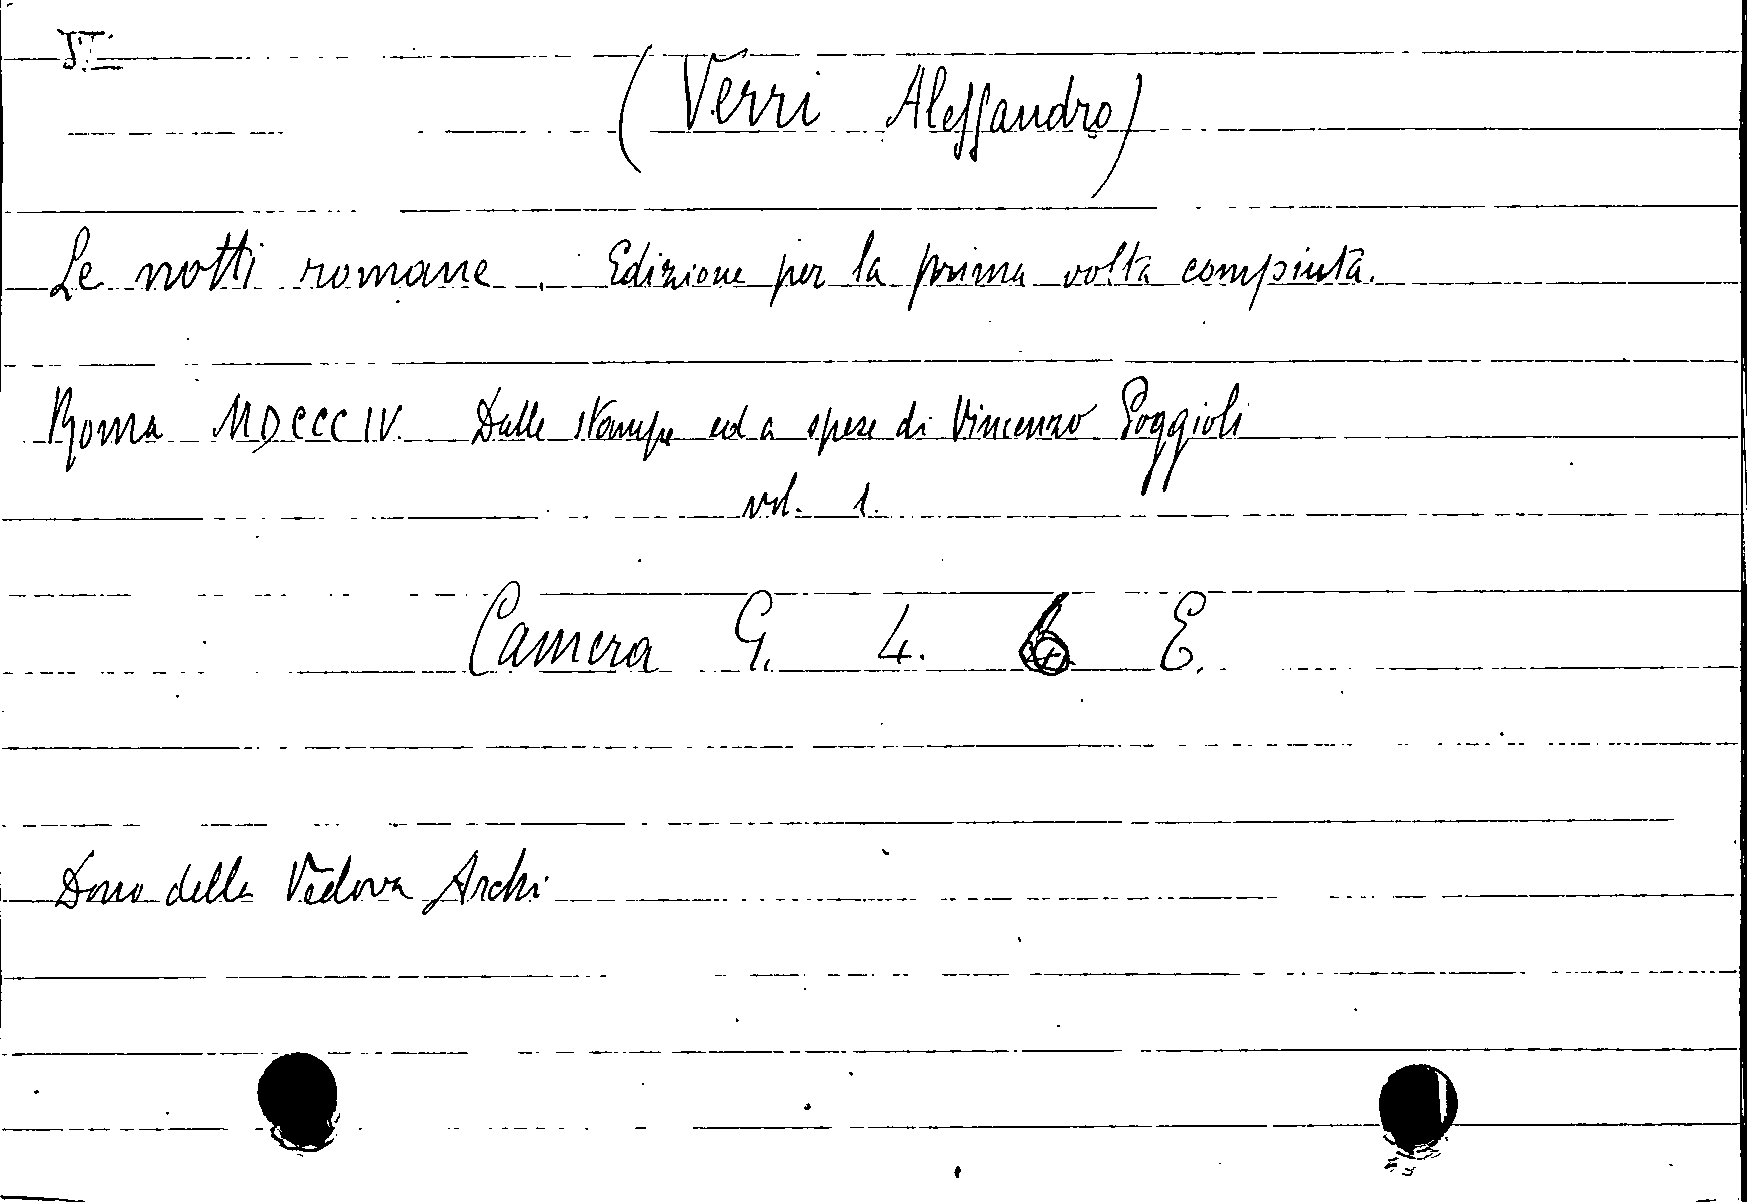 (Verri Alessandro)
Le notti romane. Edizione per la prima volta compiuta.
Roma MDCCCIV. Dalle stampe ed a spese di Vincenzo Poggioli
vol. 1.
Camera G. 4. 6 E.
Dono della Vedova Archi